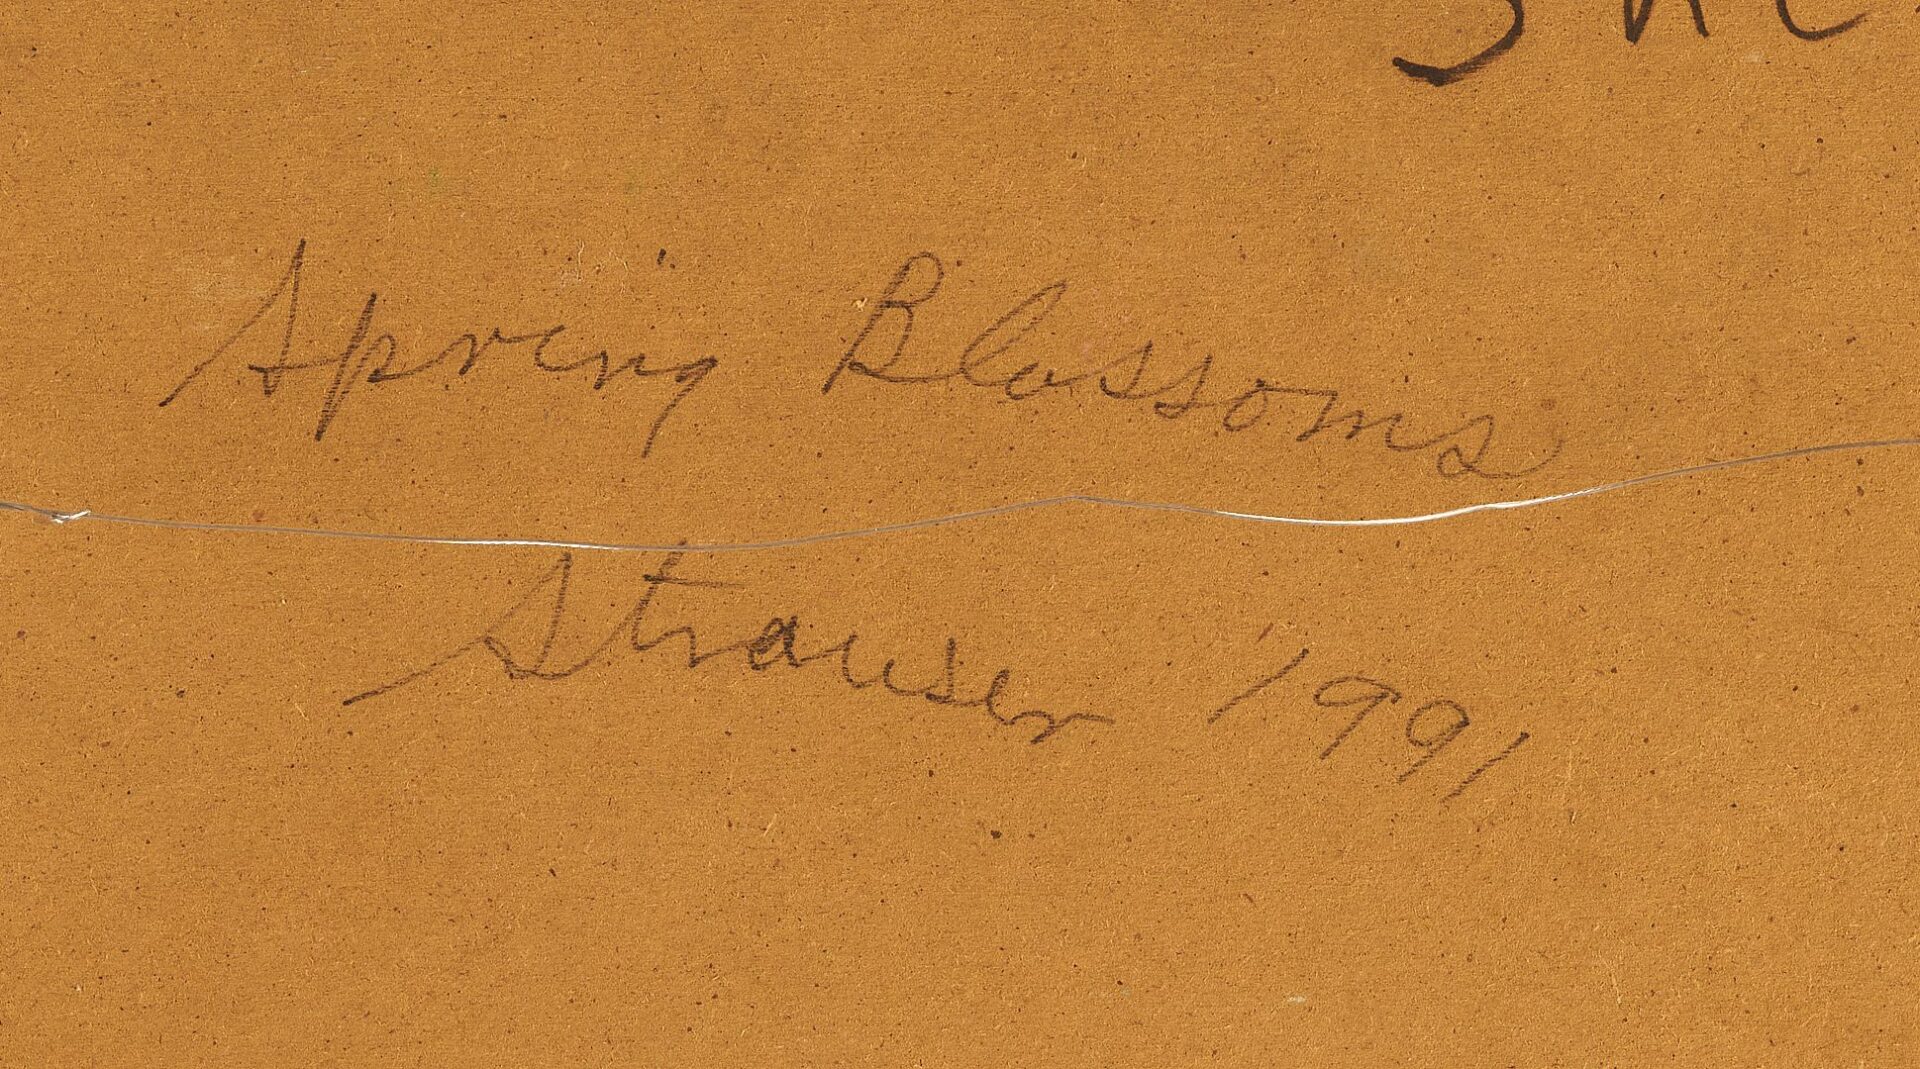 Spring Blossoms
Strauser 1991